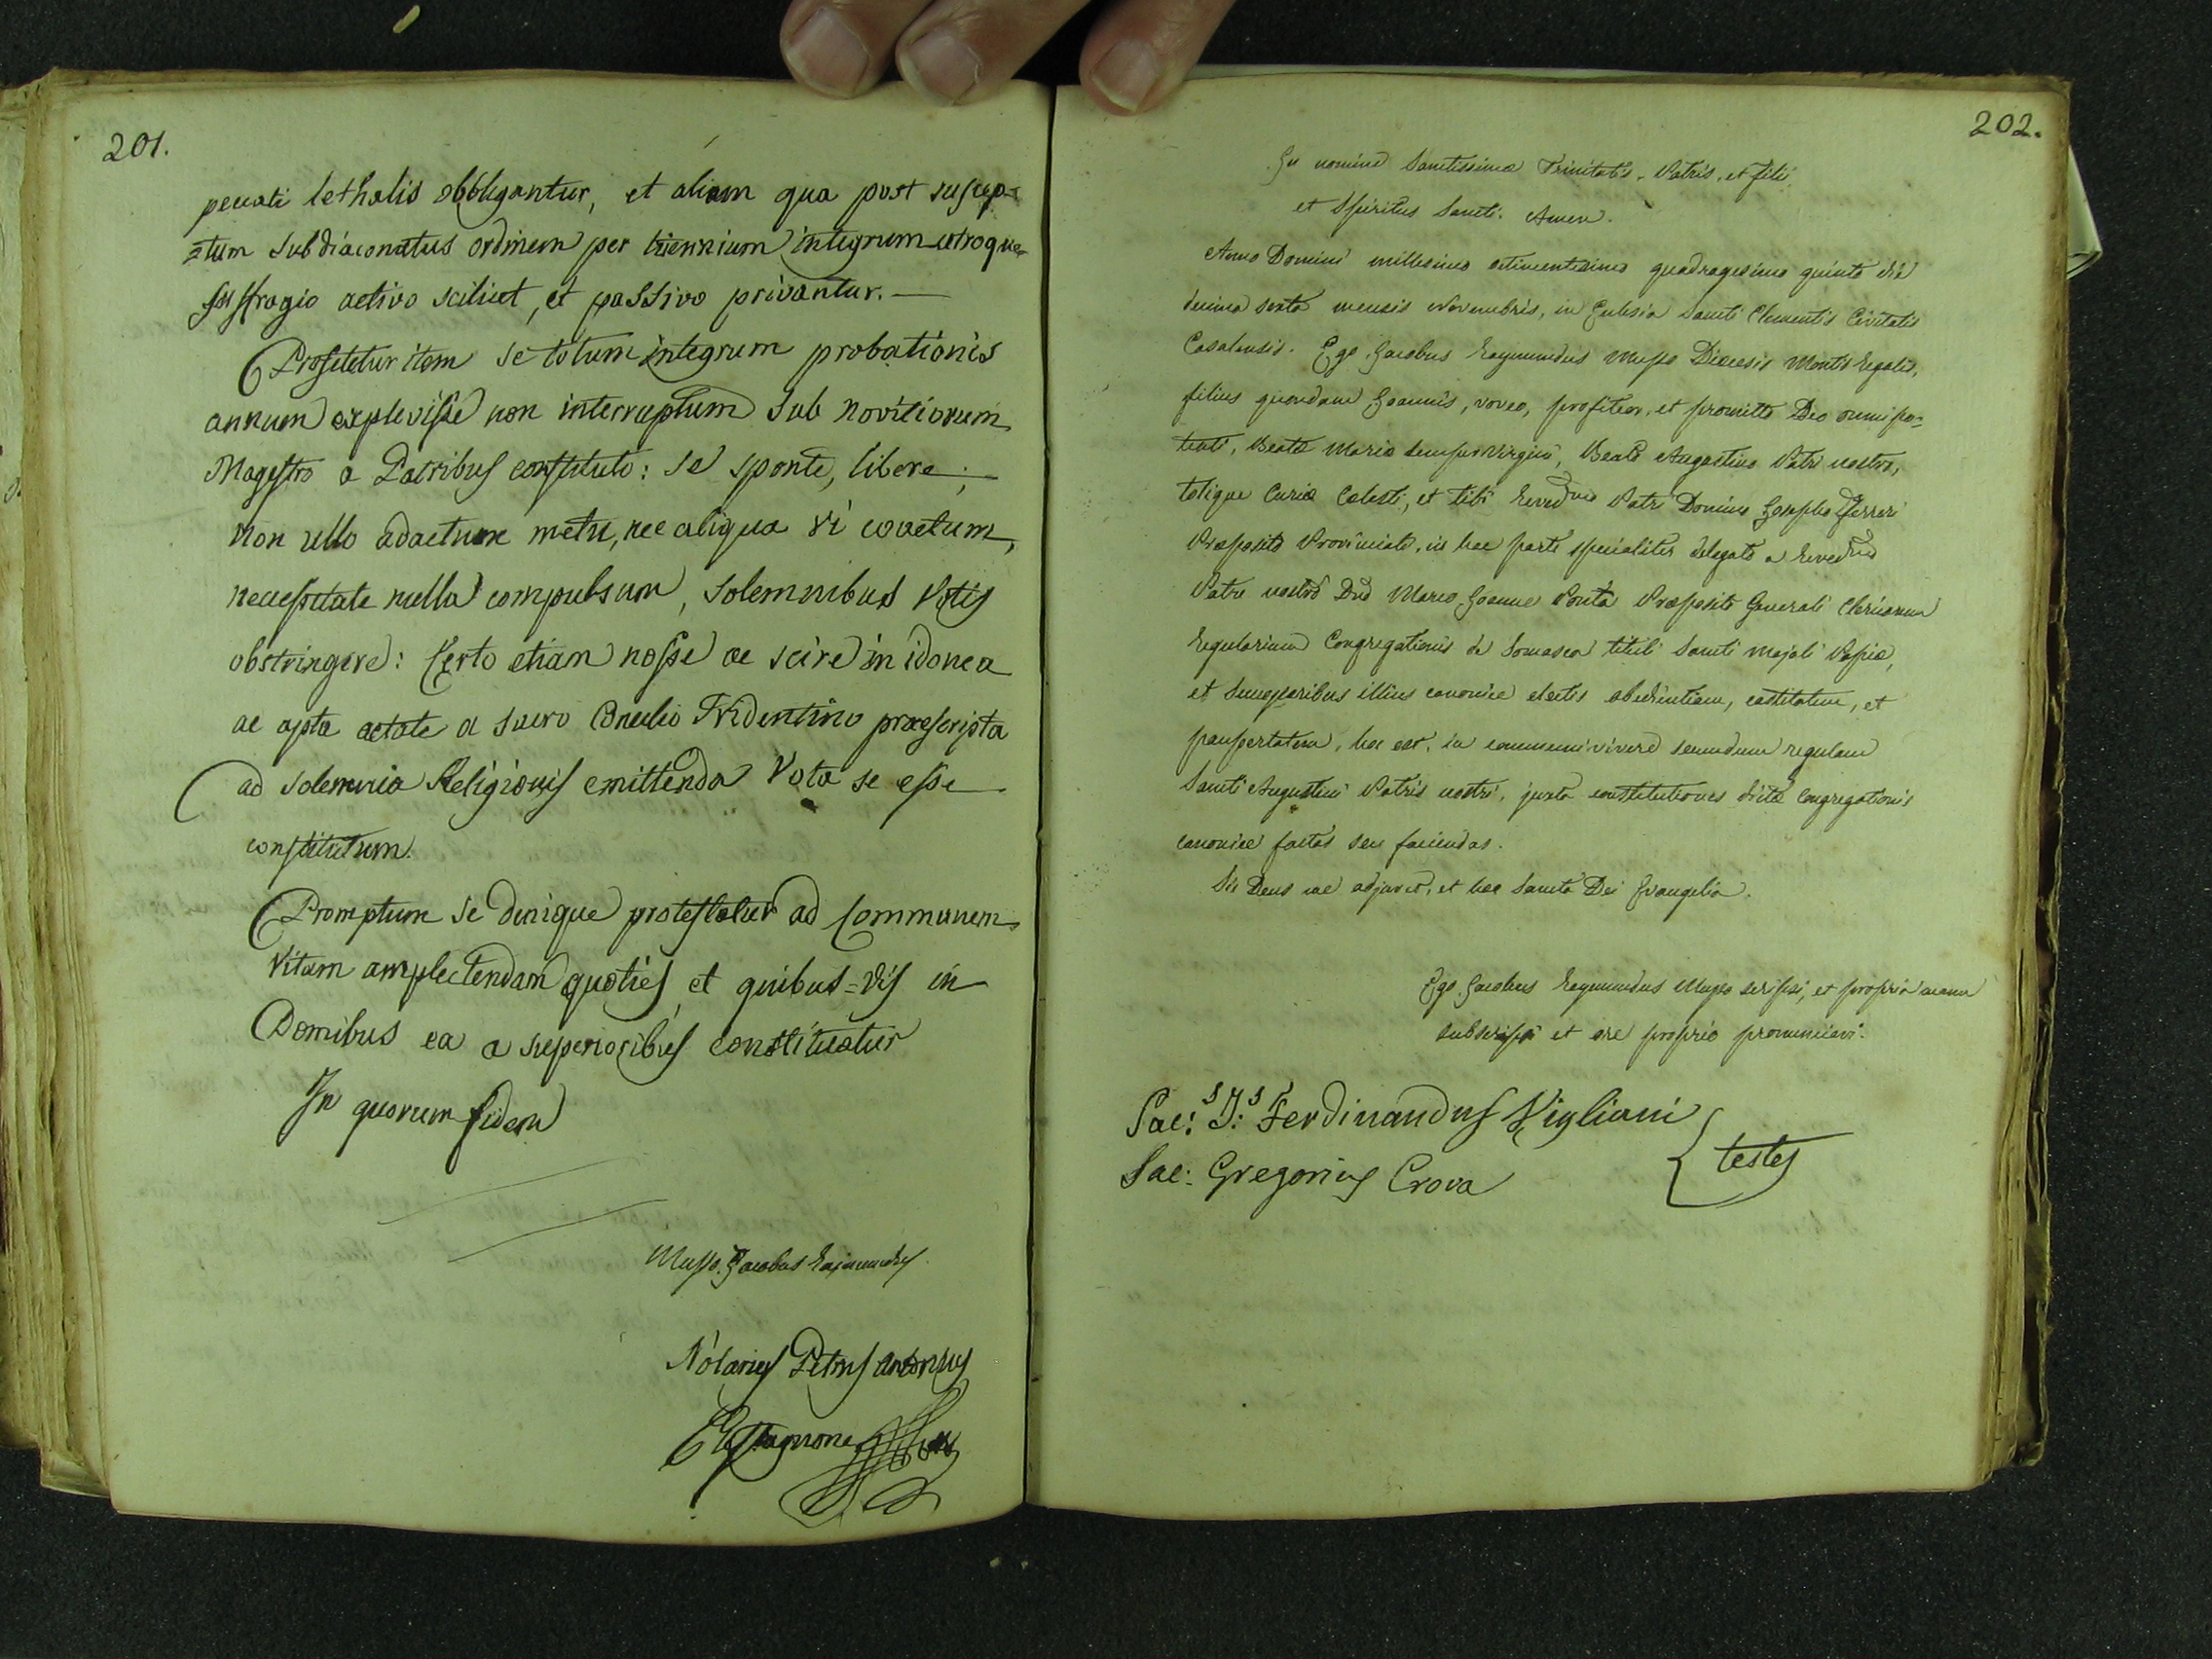 201.
peccati lethalis obbligantur, et aliam qua post suscep=
=tum subdiaconatus ordinem per triennium integrum utroque
suffragio activo scilicet, et passivo privantur.
Profitetur item se totum integrum probationis
annum explevisse non interruptum sub novitiorum
Magistro a Patribus constituto: se sponte, libere,
non ullo adactum metu, nec aliqua vi coactum,
necessitate nulla compulsum, solemnibus Votis
obstringere: Certo etiam nosse ac scire in idonea
ac apta aetate a sacro Concilio Tridentino praescripta
ad solemnia Religionis emittenda Vota se esse
constitutum.
Promptum se denique protestatur ad Communem
Vitam amplectendam quoties et quibus=vis in
Domibus ea a superioribus constituatur
In quorum fidem
Musso Jacobus Raimundus
Notarius Petrus Antonius
202.
In nomine Sanctissimæ Trinitatis, Patris, et filii
et Spiritus Sancti. Amen.
Anno Domini millesimo octincentesimo quadragesimo quinto die
decima sexta mensis Novembris, in Eclesia Sancti Clementis Civitatis
Casalensis. Ego Jacobus Raymundus Musso Diœcesis Montis Regalis,
filius quondam Joannis, voveo, profiteor, et promitto Deo omnipo=
tenti, Beatæ Mariæ semper Virgini, Beato Augustino Patri nostro,
totique Curiæ Cælesti, et tibi Revedmo Patri Domino Josepho Ferreri
Præposito Provinciali, in hac parte specialiter delegato a Revedmo
Patre nostro Dno Marco Joanne Ponta Præposito Generali Clericorum
Regularium Congregationis de Somascha tituli Sancti Majoli Papiæ,
et Successoribus illius canonice electis obedientiam, castitatem, et
paupertatem, hoc est, in communi vivere secundum regulam
Sancti Augustini Patris nostri, juxta constitutiones dictæ Congregationis
canonice factas seu faciendas.
Sic Deus me adjuvet, et hæc Sancta Dei Evangelia.
Ego Jacobus Raymundus Musso scripsi, et propria manu
subscripsi et ore proprio pronunciavi.
Sac: Ferdinandus Vigliani
Sac: Gregorius Crova
testes